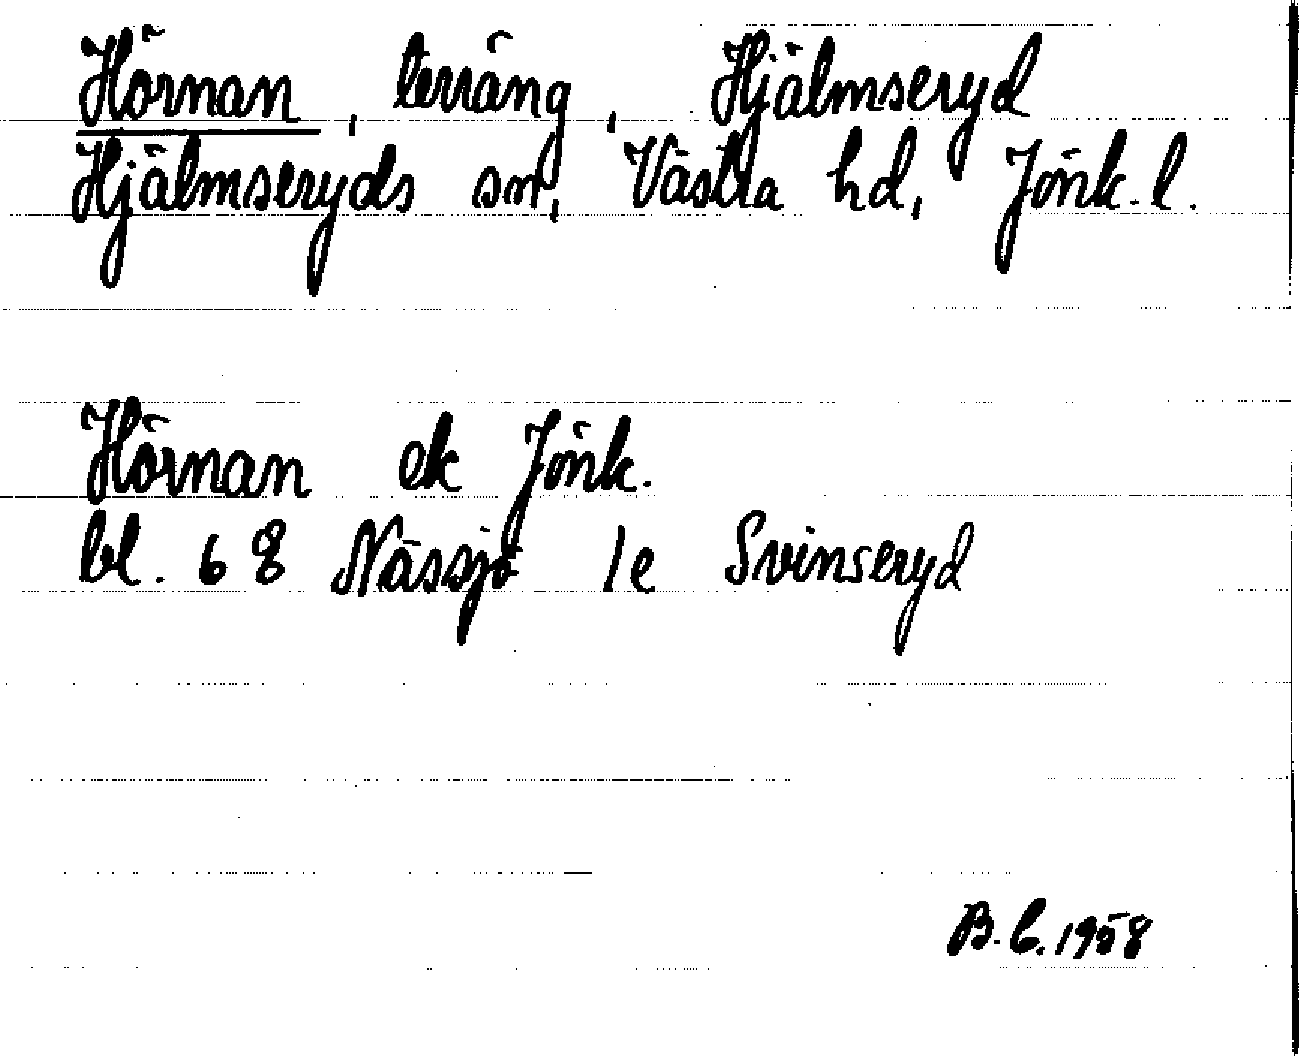 Hörnan, terräng, Hjälmseryd
Hjälmseryds sn, Västra hd, Jönk. l.
Hörnan ek Jönk.
bl. 68 Nässjö 1e Svinseryd
B.C. 1958